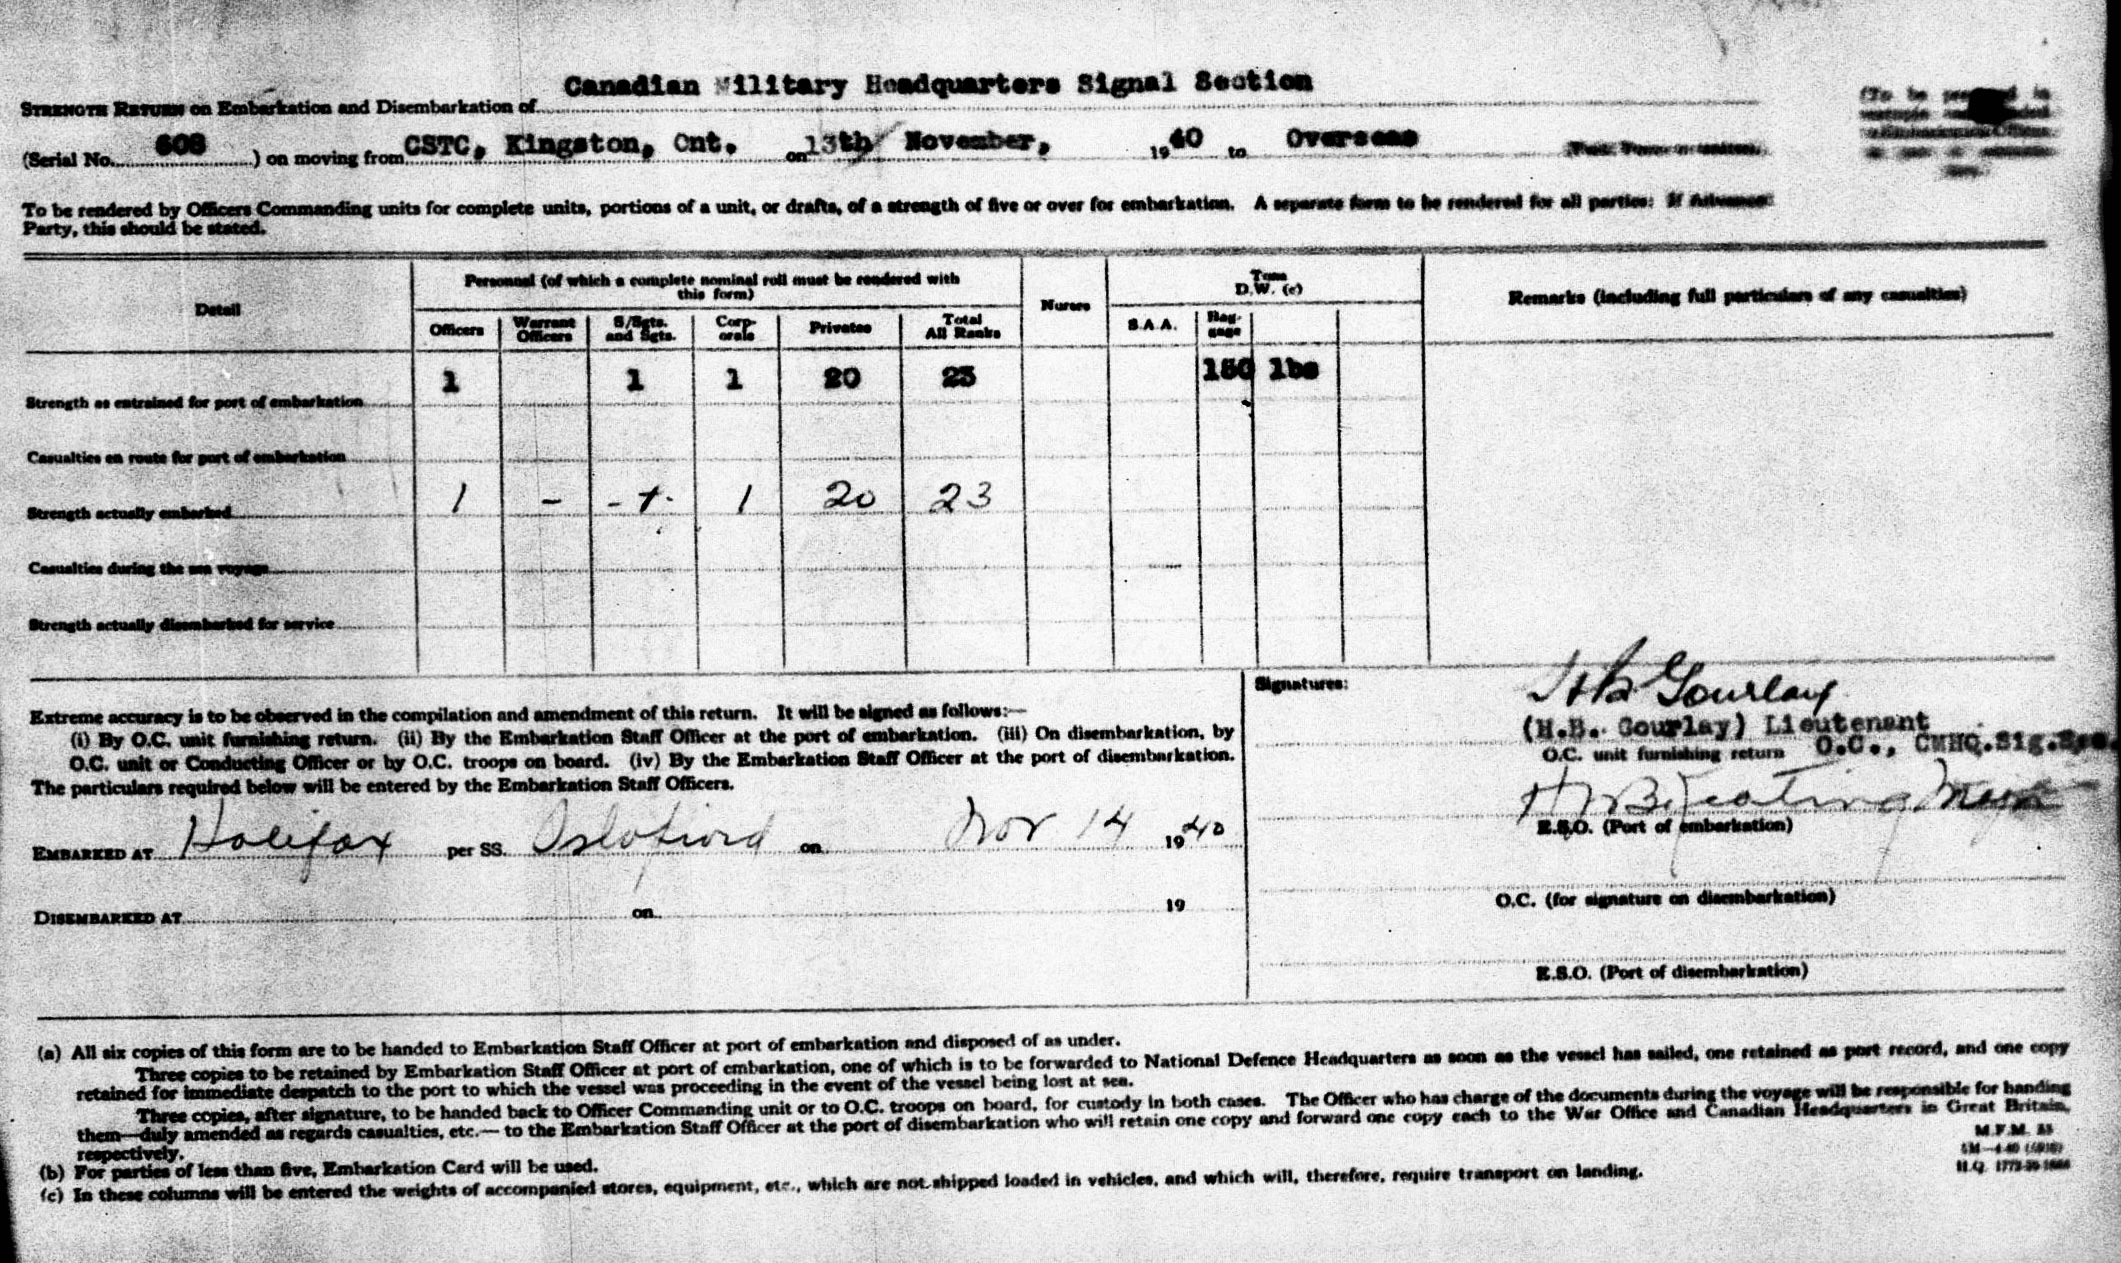 Canadian Military Headquarters Signal Section
STRENGTH RETURN on Embarkation and Disembarkation of
(Serial No. 608 ) on moving from CSTC, Kingston, Ont. on 13th November, 1940 to Overseas
(To be prepared in
To be rendered by Officers Commanding units for complete units, portions of a unit, or drafts, of a strength of five or over for embarkation. A separate form to be rendered for all parties: If Advance
Party, this should be stated.
Detail
Personnel (of which a complete nominal roll must be rendered with
this form)
Nurses
Tons
D.W. (c)
Remarks (including full particulars of any casualties)
Officers
Warrant
Officers
S/Sgts.
and Sgts.
Corp-
orals
Privates
Total
All Ranks
S.A.A.
Bag-
gage
Strength as entrained for port of embarkation 1 1 1 20 23 150 lbs
Casualties en route for port of embarkation
Strength actually embarked 1 - - 1 - 1 20 23
Casualties during the sea voyage
Strength actually disembarked for service
Extreme accuracy is to be observed in the compilation and amendment of this return. It will be signed as follows:—
(i) By O.C. unit furnishing return. (ii) By the Embarkation Staff Officer at the port of embarkation. (iii) On disembarkation, by
O.C. unit or Conducting Officer or by O.C. troops on board. (iv) By the Embarkation Staff Officer at the port of disembarkation.
The particulars required below will be entered by the Embarkation Staff Officers.
EMBARKED AT Halifax per SS. Oslofjord on Nov 14 1940
DISEMBARKED AT on 19
Signatures:
HB Gourlay
(H.B. Gourlay) Lieutenant
O.C. unit furnishing return O.C., CMHQ.Sig.Sec.
Keating Major
E.S.O. (Port of embarkation)
O.C. (for signature on disembarkation)
E.S.O. (Port of disembarkation)
(a) All six copies of this form are to be handed to Embarkation Staff Officer at port of embarkation and disposed of as under.
Three copies to be retained by Embarkation Staff Officer at port of embarkation, one of which is to be forwarded to National Defence Headquarters as soon as the vessel has sailed, one retained as port record, and one copy
retained for immediate despatch to the port to which the vessel was proceeding in the event of the vessel being lost at sea.
Three copies, after signature, to be handed back to Officer Commanding unit or to O.C. troops on board, for custody in both cases. The Officer who has charge of the documents during the voyage will be responsible for handing
them—duly amended as regards casualties, etc.— to the Embarkation Staff Officer at the port of disembarkation who will retain one copy and forward one copy each to the War Office and Canadian Headquarters in Great Britain,
respectively.
(b) For parties of less than five, Embarkation Card will be used.
(c) In these columns will be entered the weights of accompanied stores, equipment, etc., which are not shipped loaded in vehicles, and which will, therefore, require transport on landing.
M.F.M. 55
H.Q.